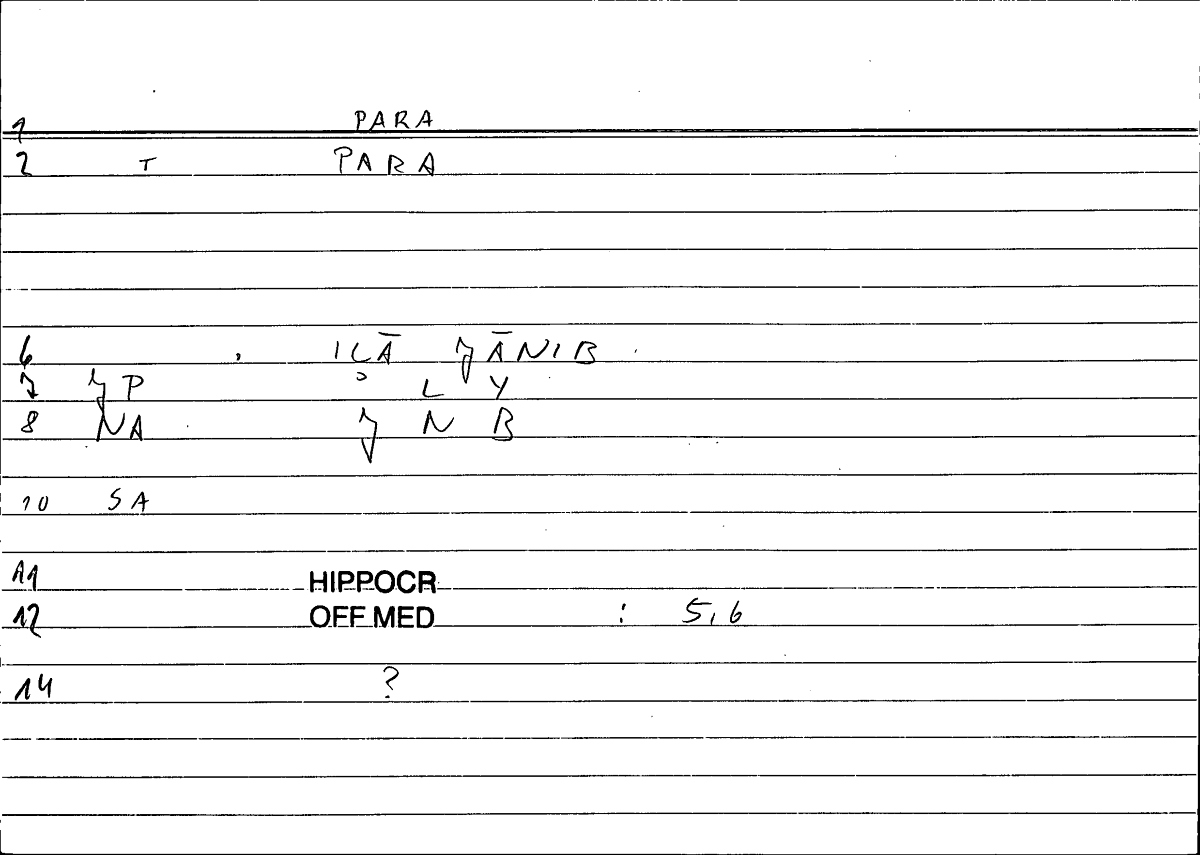 1 PARA
2 T PARA
6 , ILĀ ǦĀNIB
7 ǦP ʾ L Y
8 NA Ǧ N B
10 SA
11 HIPPOCR
12 OFF MED : 5,6
14 ?